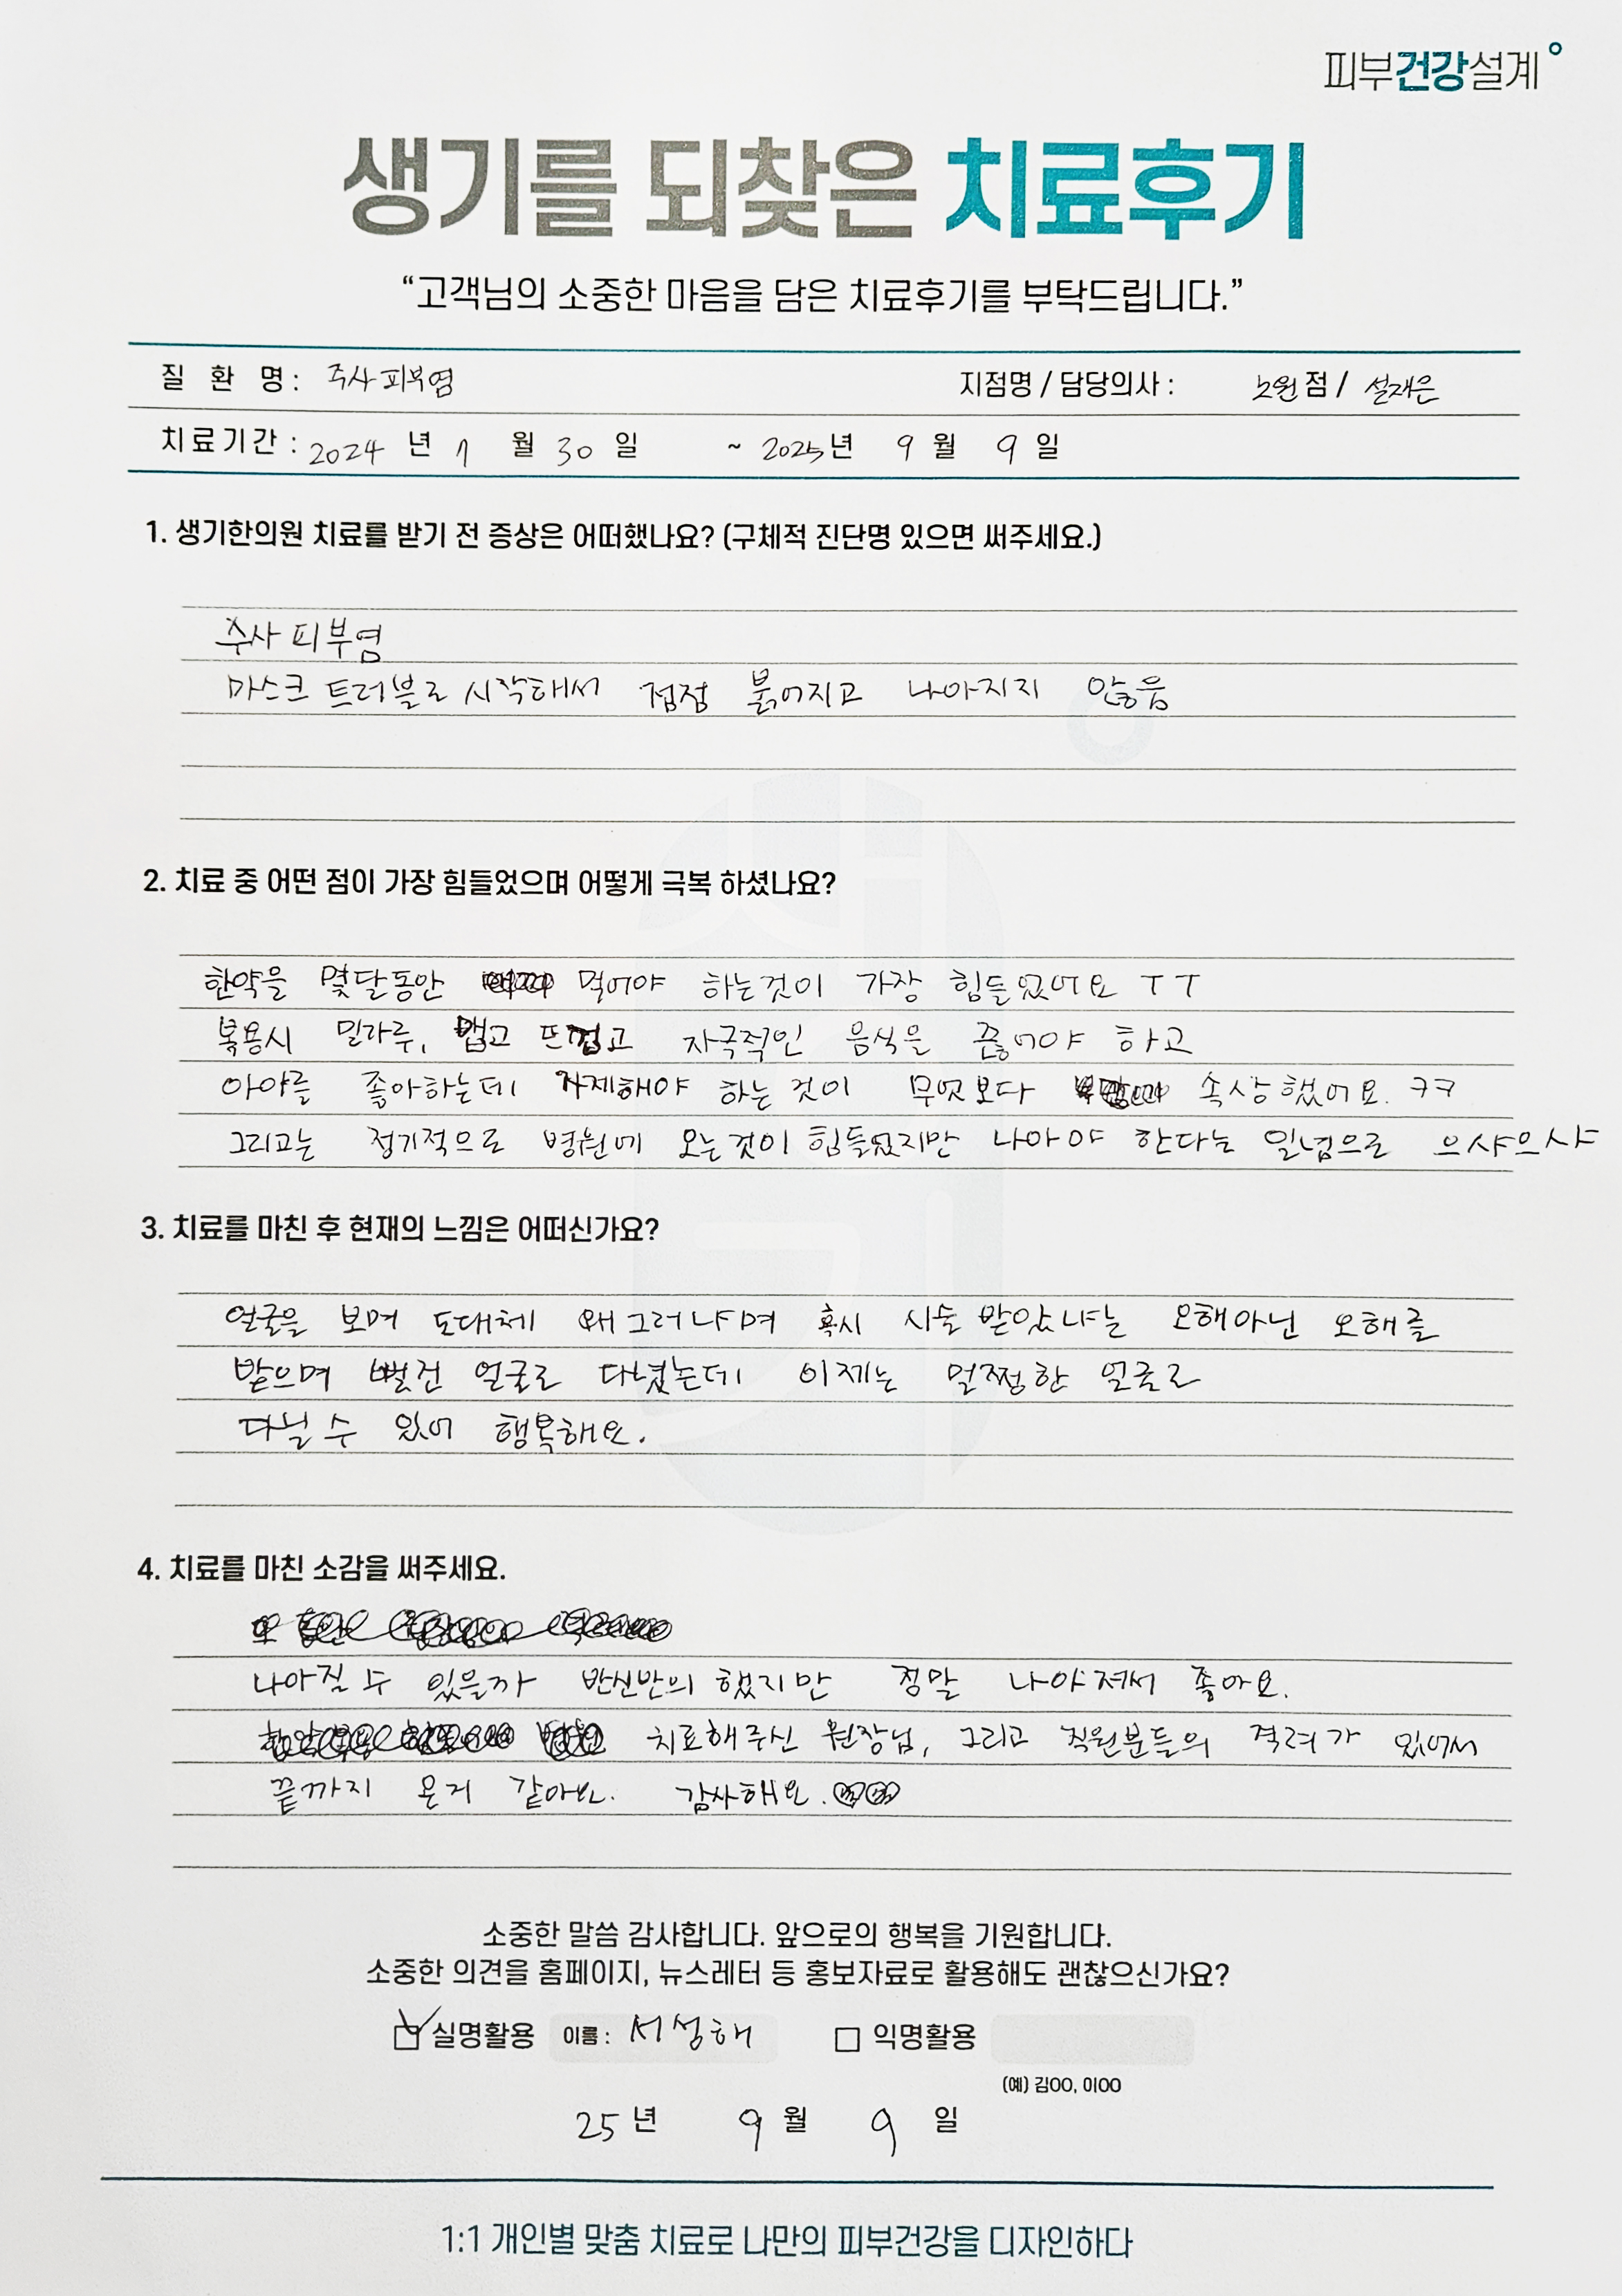 피부건강설계
생기를 되찾은 치료후기
“고객님의 소중한 마음을 담은 치료후기를 부탁드립니다.”
질 환 명 : 주사피부염 지점명 / 담당의사 : 노원점 / 설재은
치료기간 : 2024 년 7 월 30 일 ~ 2025년 9 월 9 일
1. 생기한의원 치료를 받기 전 증상은 어떠했나요? (구체적 진단명 있으면 써주세요.)
주사 피부염
마스크 트러블로 시작해서 점점 붉어지고 나아지지 않음
2. 치료 중 어떤 점이 가장 힘들었으며 어떻게 극복 하셨나요?
한약을 몇달동안 먹어야 하는것이 가장 힘들었어요 ㅜㅜ
복용시 밀가루, 맵고 뜨겁고 자극적인 음식을 끊어야 하고
아아를 좋아하는데 자제해야 하는 것이 무엇보다 속상했어요. ㅋㅋ
그리고는 정기적으로 병원에 오는것이 힘들었지만 나아야 한다는 일념으로 으샤으샤
3. 치료를 마친 후 현재의 느낌은 어떠신가요?
얼굴을 보며 도대체 왜 그러냐며 혹시 시술 받았냐는 오해아닌 오해를
받으며 뻘건 얼굴로 다녔는데 이제는 멀쩡한 얼굴로
다닐 수 있어 행복해요.
4. 치료를 마친 소감을 써주세요.
나아질 수 있을까 반신반의 했지만 정말 나아져서 좋아요.
치료해주신 원장님, 그리고 직원분들의 격려가 있어서
끝까지 온거 같아요. 감사해요.
소중한 말씀 감사합니다. 앞으로의 행복을 기원합니다.
소중한 의견을 홈페이지, 뉴스레터 등 홍보자료로 활용해도 괜찮으신가요?
실명활용 이름 : 서성해 익명활용
(예) 김OO, 이OO
25 년 9 월 9 일
1:1 개인별 맞춤 치료로 나만의 피부건강을 디자인하다